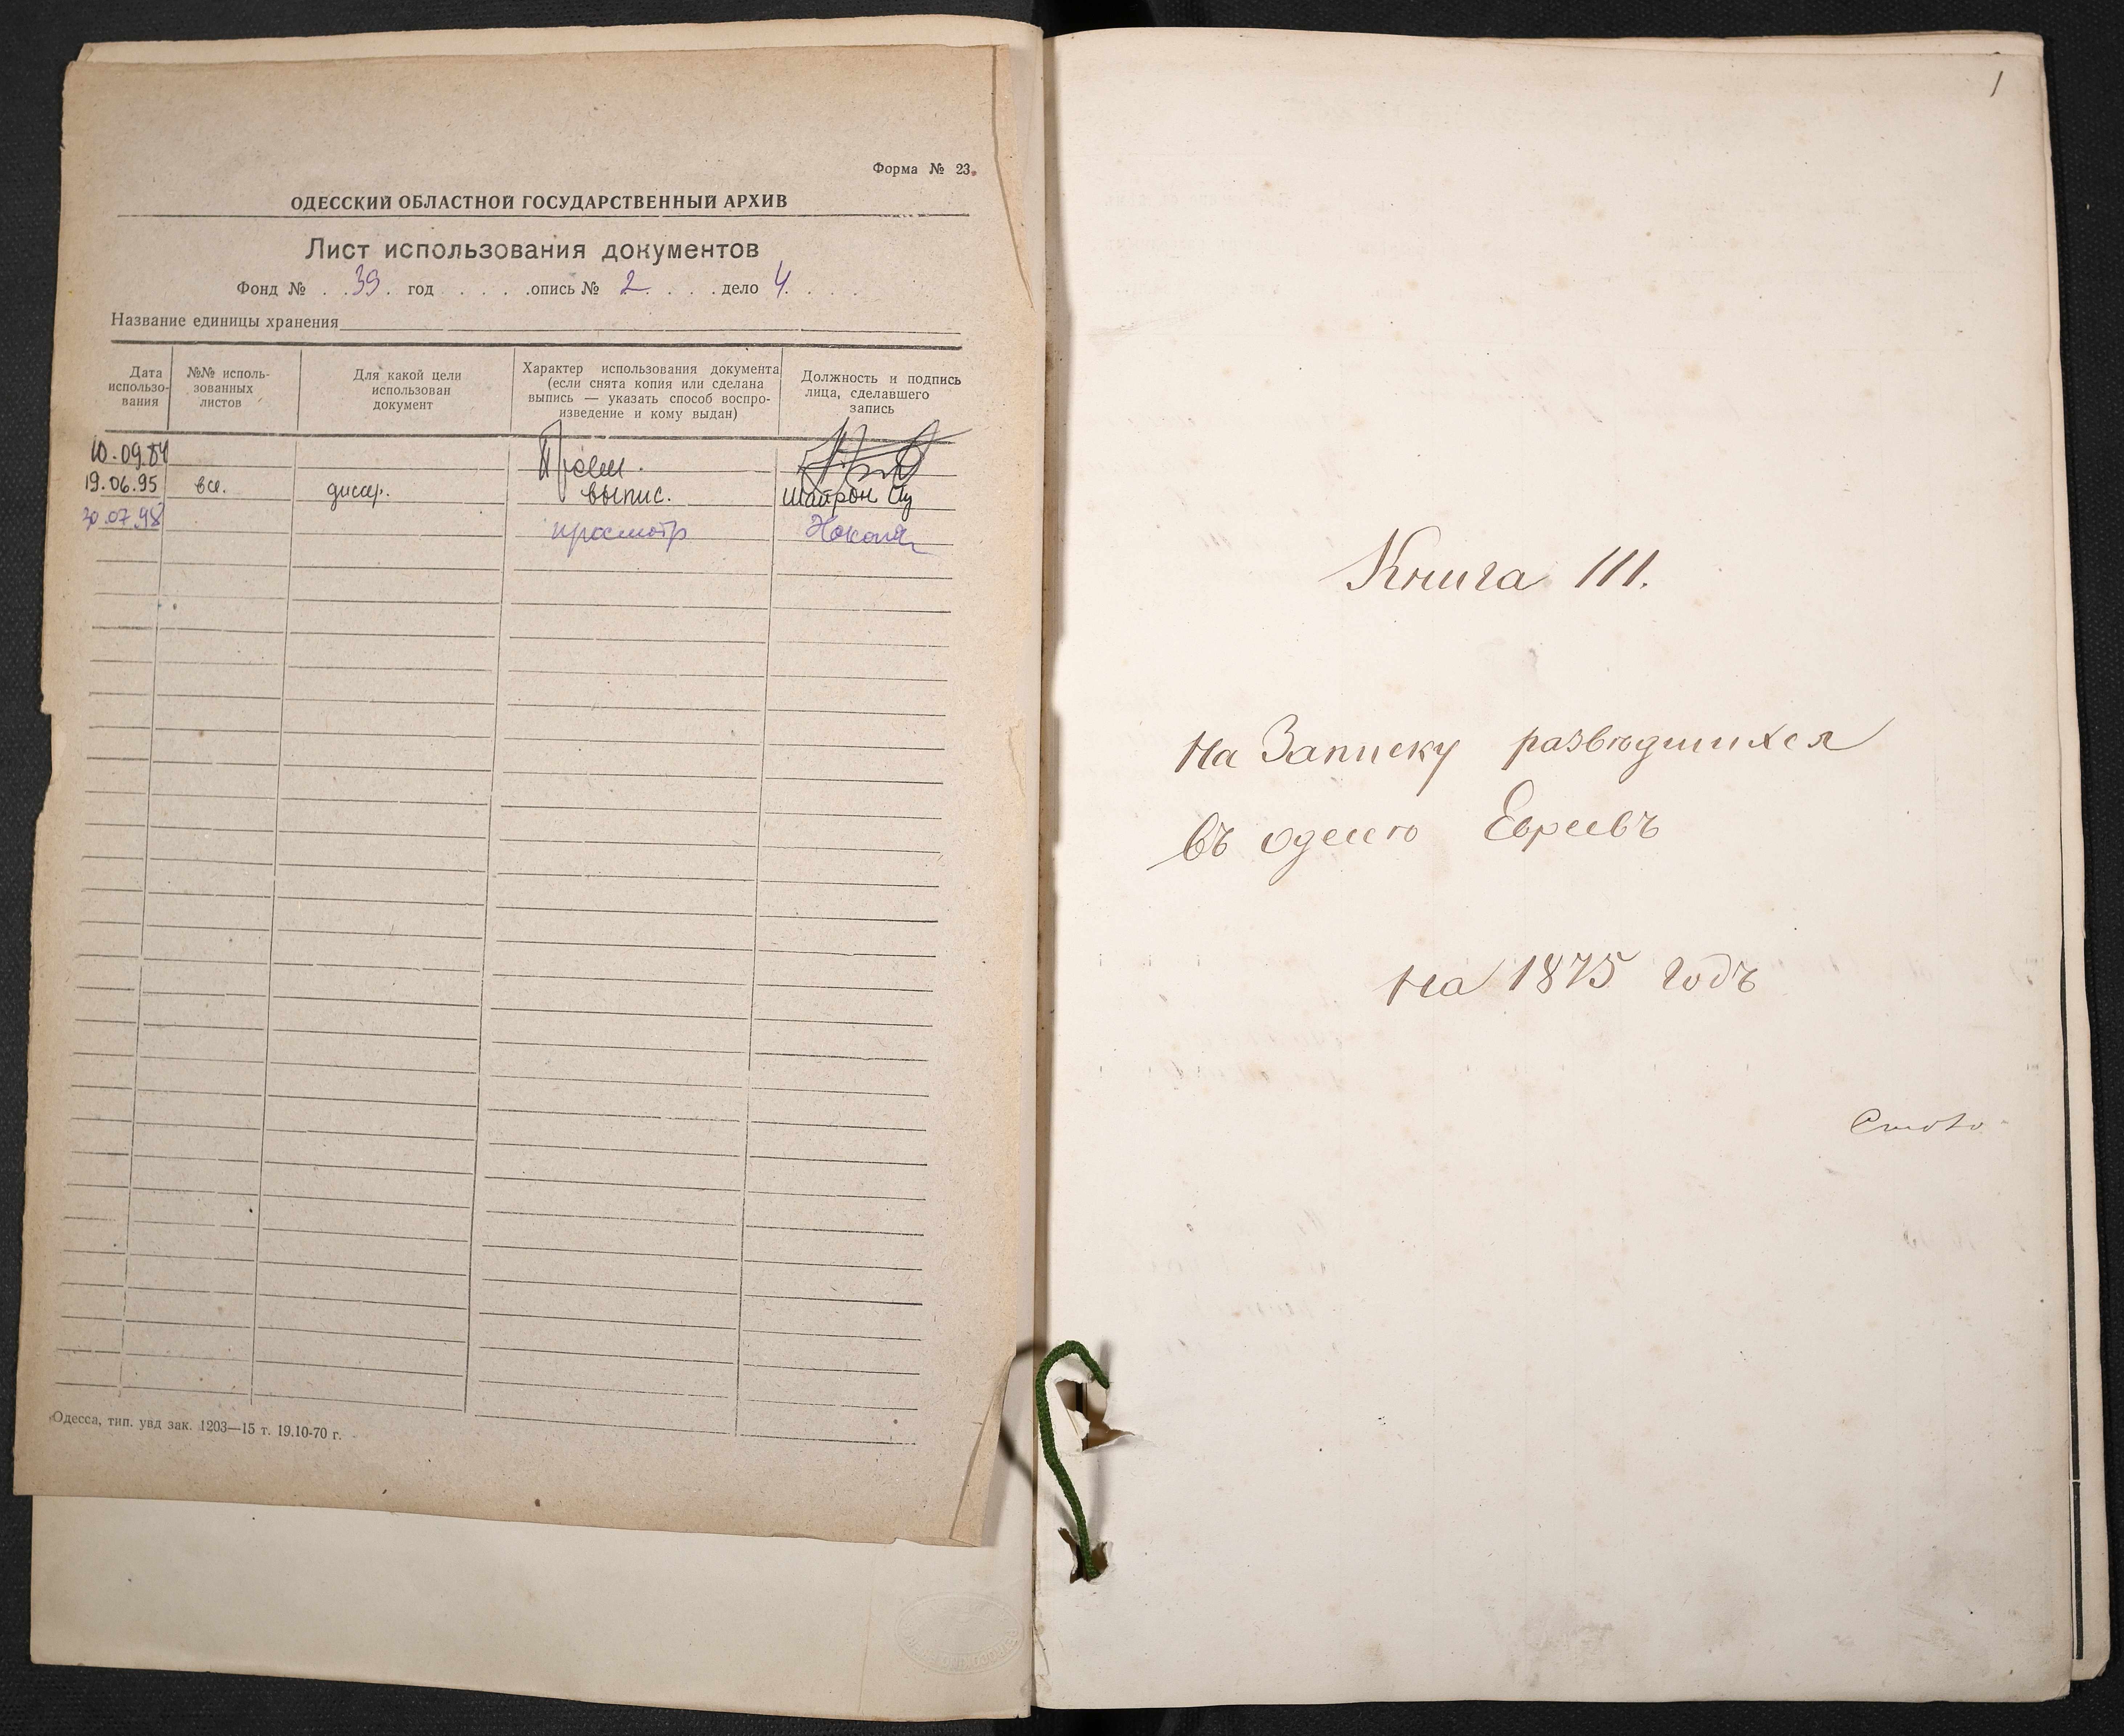 Форма № 23.
ОДЕССКИЙ ОБЛАСТНОЙ ГОСУДАРСТВЕННЫЙ АРХИВ
Лист использования документов
Фонд № . . 39 . год . . . . . опись № 2 . . . . дело 4 . . . .
Название единицы хранения
Дата
использо-
вания
№№ исполь-
зованных
листов
Для какой цели
использован
документ
Характер использования документа
(если снята копия или сделана
выпись — указать способ воспро-
изведение и кому выдан)
Должность и подпись
лица, сделавшего
запись
10.09.84
19.06.95 все. диссер. выпис.
30.07.98 просмотр
Одесса, тип. увд зак. 1203—15 т. 19.10-70 г.
1
Книга III.
На Записку разведшихся
въ одессѣ Евреевъ
на 1875 годъ